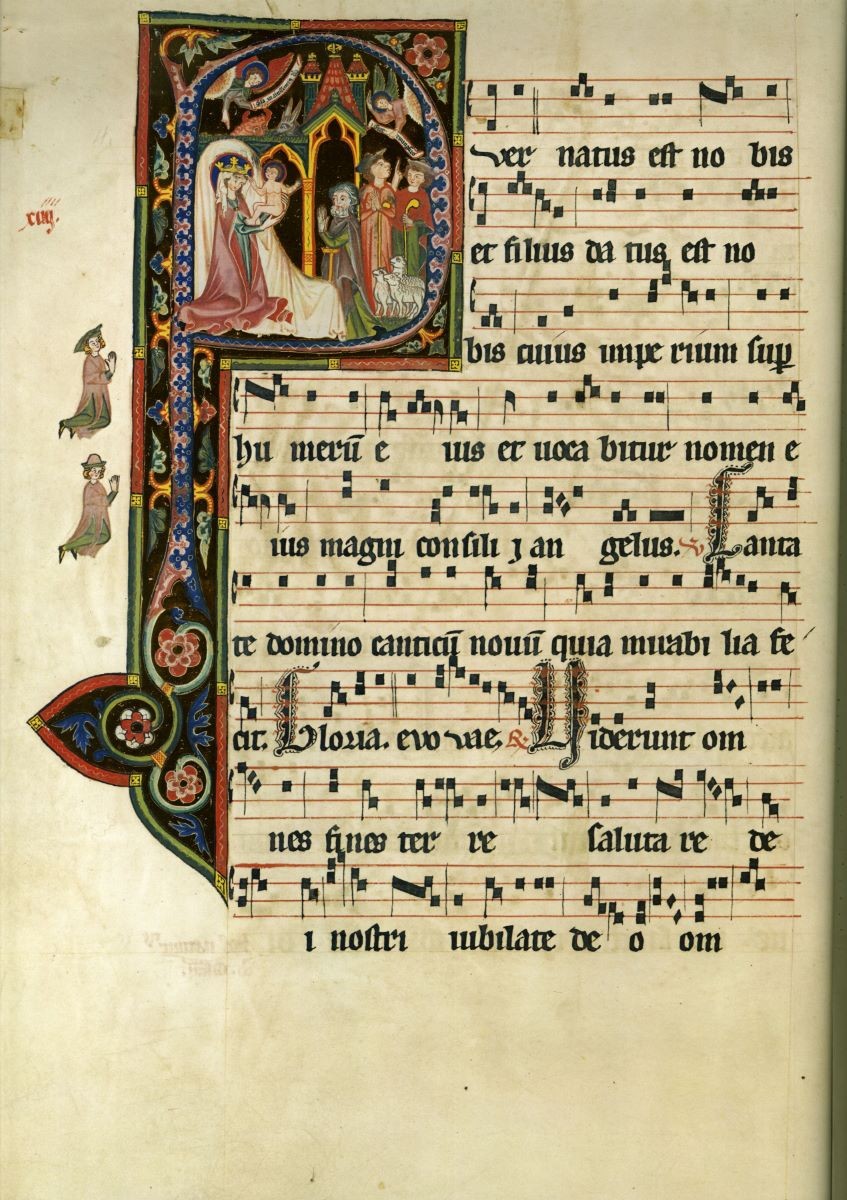 xiiij.
P
ver natus est no bis
et filius da tus est no
bis cuius impe rium sup
hu merū e ius et uoca bitur nomen e
ius magni consili j an gelus. Canta
te domino canticū nouū quia mirabi lia fe
cit. Gloria. evovae. Viderunt om
nes fines ter re saluta re de
i nostri iubilate de o om